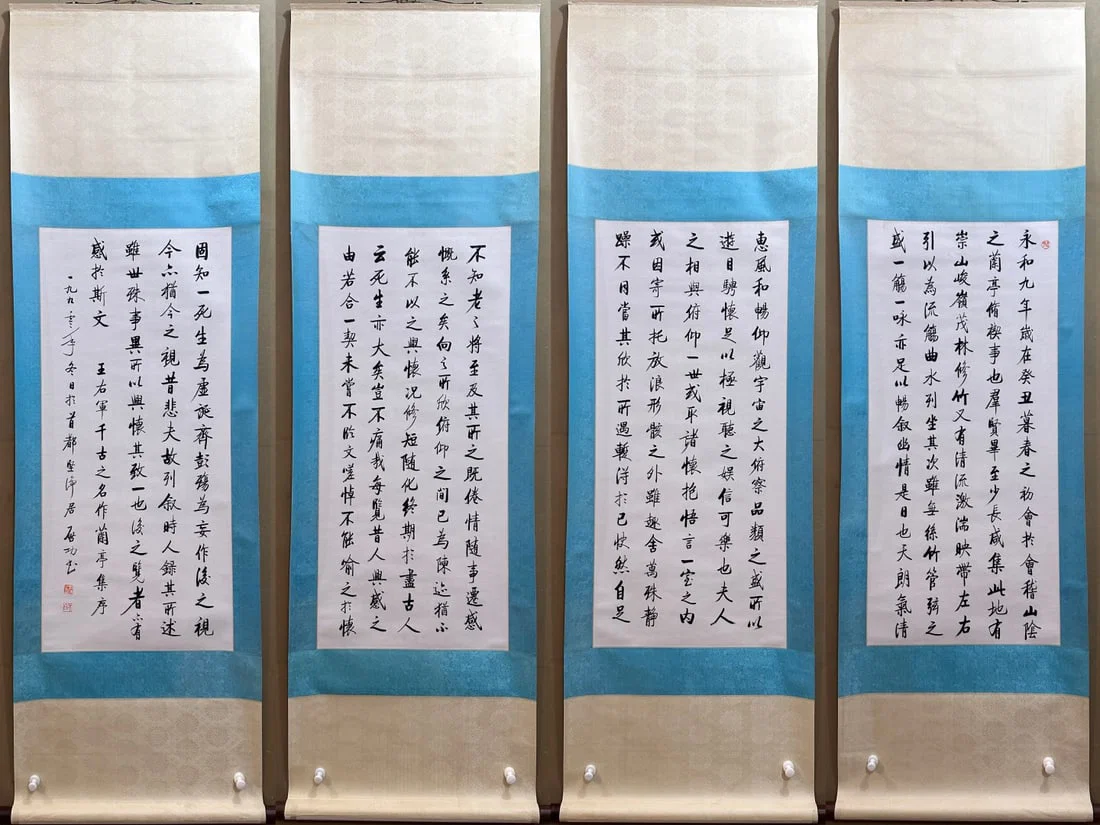 永和九年歲在癸丑暮春之初會於會稽山陰
之蘭亭脩稧事也羣賢畢至少長咸集此地有
崇山峻嶺茂林修竹又有清流激湍映帶左右
引以為流觴曲水列坐其次雖無絲竹管弦之
盛一觴一咏亦足以暢叙幽情是日也天朗氣清
惠風和暢仰觀宇宙之大俯察品類之盛所以
遊目騁懷足以極視聽之娛信可樂也夫人
之相與俯仰一世或取諸懷抱悟言一室之內
或因寄所托放浪形骸之外雖趣舍萬殊靜
躁不同當其欣於所遇暫得於己怏然自足
不知老之將至及其所之既倦情隨事遷感
慨系之矣向之所欣俯仰之間已為陳迹猶不
能不以之興懷况修短隨化終期於盡古人
云死生亦大矣豈不痛哉每覽昔人興感之
由若合一契未嘗不臨文嗟悼不能喻之於懷
固知一死生為虛誕齊彭殤為妄作後之視
今亦猶今之視昔悲夫故列叙時人錄其所述
雖世殊事異所以興懷其致一也後之覽者亦有
感於斯文 王右軍千古之名作蘭亭集序
一九九〇年冬日於首都堅淨居啟功書